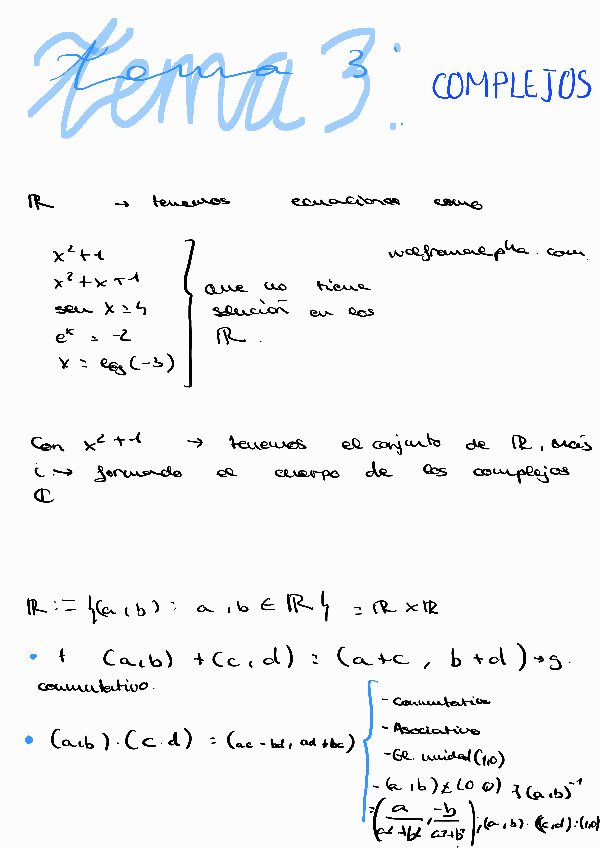 Tema 3: COMPLEJOS
ℝ → tenemos ecuaciones como
wolframalpha.com
x² + 1
x² + x + 1
sen x = 4
eˣ = -2
x = log (-3)
que no tiene
solución en los
ℝ.
Con x² + 1 → tenemos el conjunto de ℝ, más
i → formando el cuerpo de los complejos
ℂ
ℝ := {(a, b) : a, b ∈ ℝ} = ℝ × ℝ
• + (a,b) + (c, d) = (a+c, b+d) → g.
conmutativo.
• (a,b) · (c.d) = (ac - bd, ad + bc)
- Conmutativa
- Asociativo
- El. unidad (1,0)
- (a, b) ≠ (0 0) ∃ (a, b)⁻¹
= (a/a²+b², -b/a²+b²), (a, b) · (c, d) = (1,0)